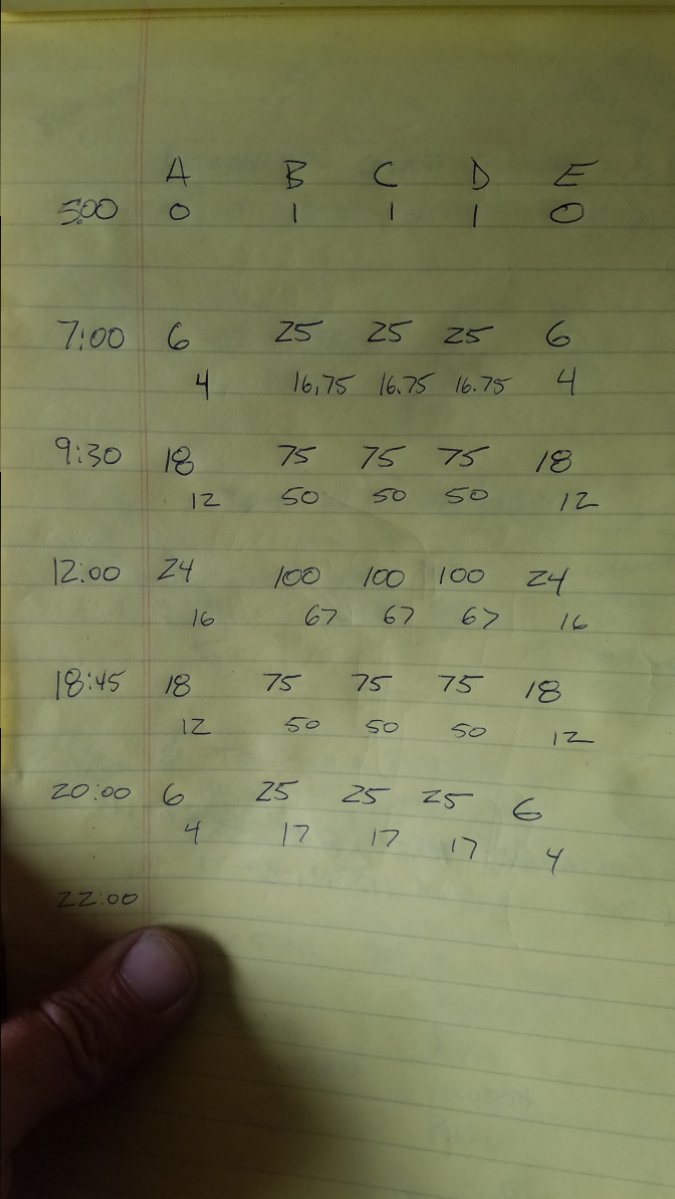 A B C D E
5:00 0 1 1 1 0
7:00 6 25 25 25 6
4 16.75 16.75 16.75 4
9:30 18 75 75 75 18
12 50 50 50 12
12:00 24 100 100 100 24
16 67 67 67 16
18:45 18 75 75 75 18
12 50 50 50 12
20:00 6 25 25 25 6
4 17 17 17 4
22:00